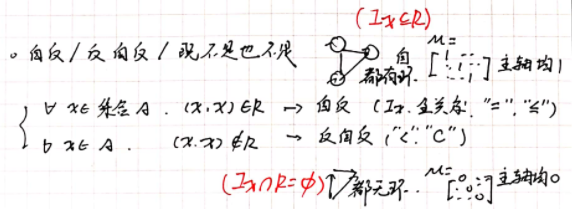 (Ix⊆R)
。自反/反自反/既不是也不是 自 都有环. M=[1 1 1] 主轴均1
∀ x∈集合A. (x,x)∈R → 自反 (Ix. 全关系. "=", "≤")
∀ x∈A. (x,x)∉R → 反自反 ("<" "⊂")
(Ix∩R=∅) 都无环.. M=[0 0 0] 主轴均0